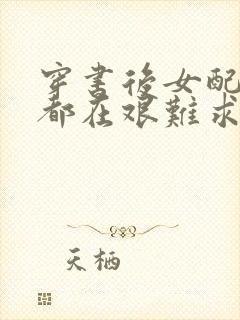 穿书後女配
都在艰難求
天栖